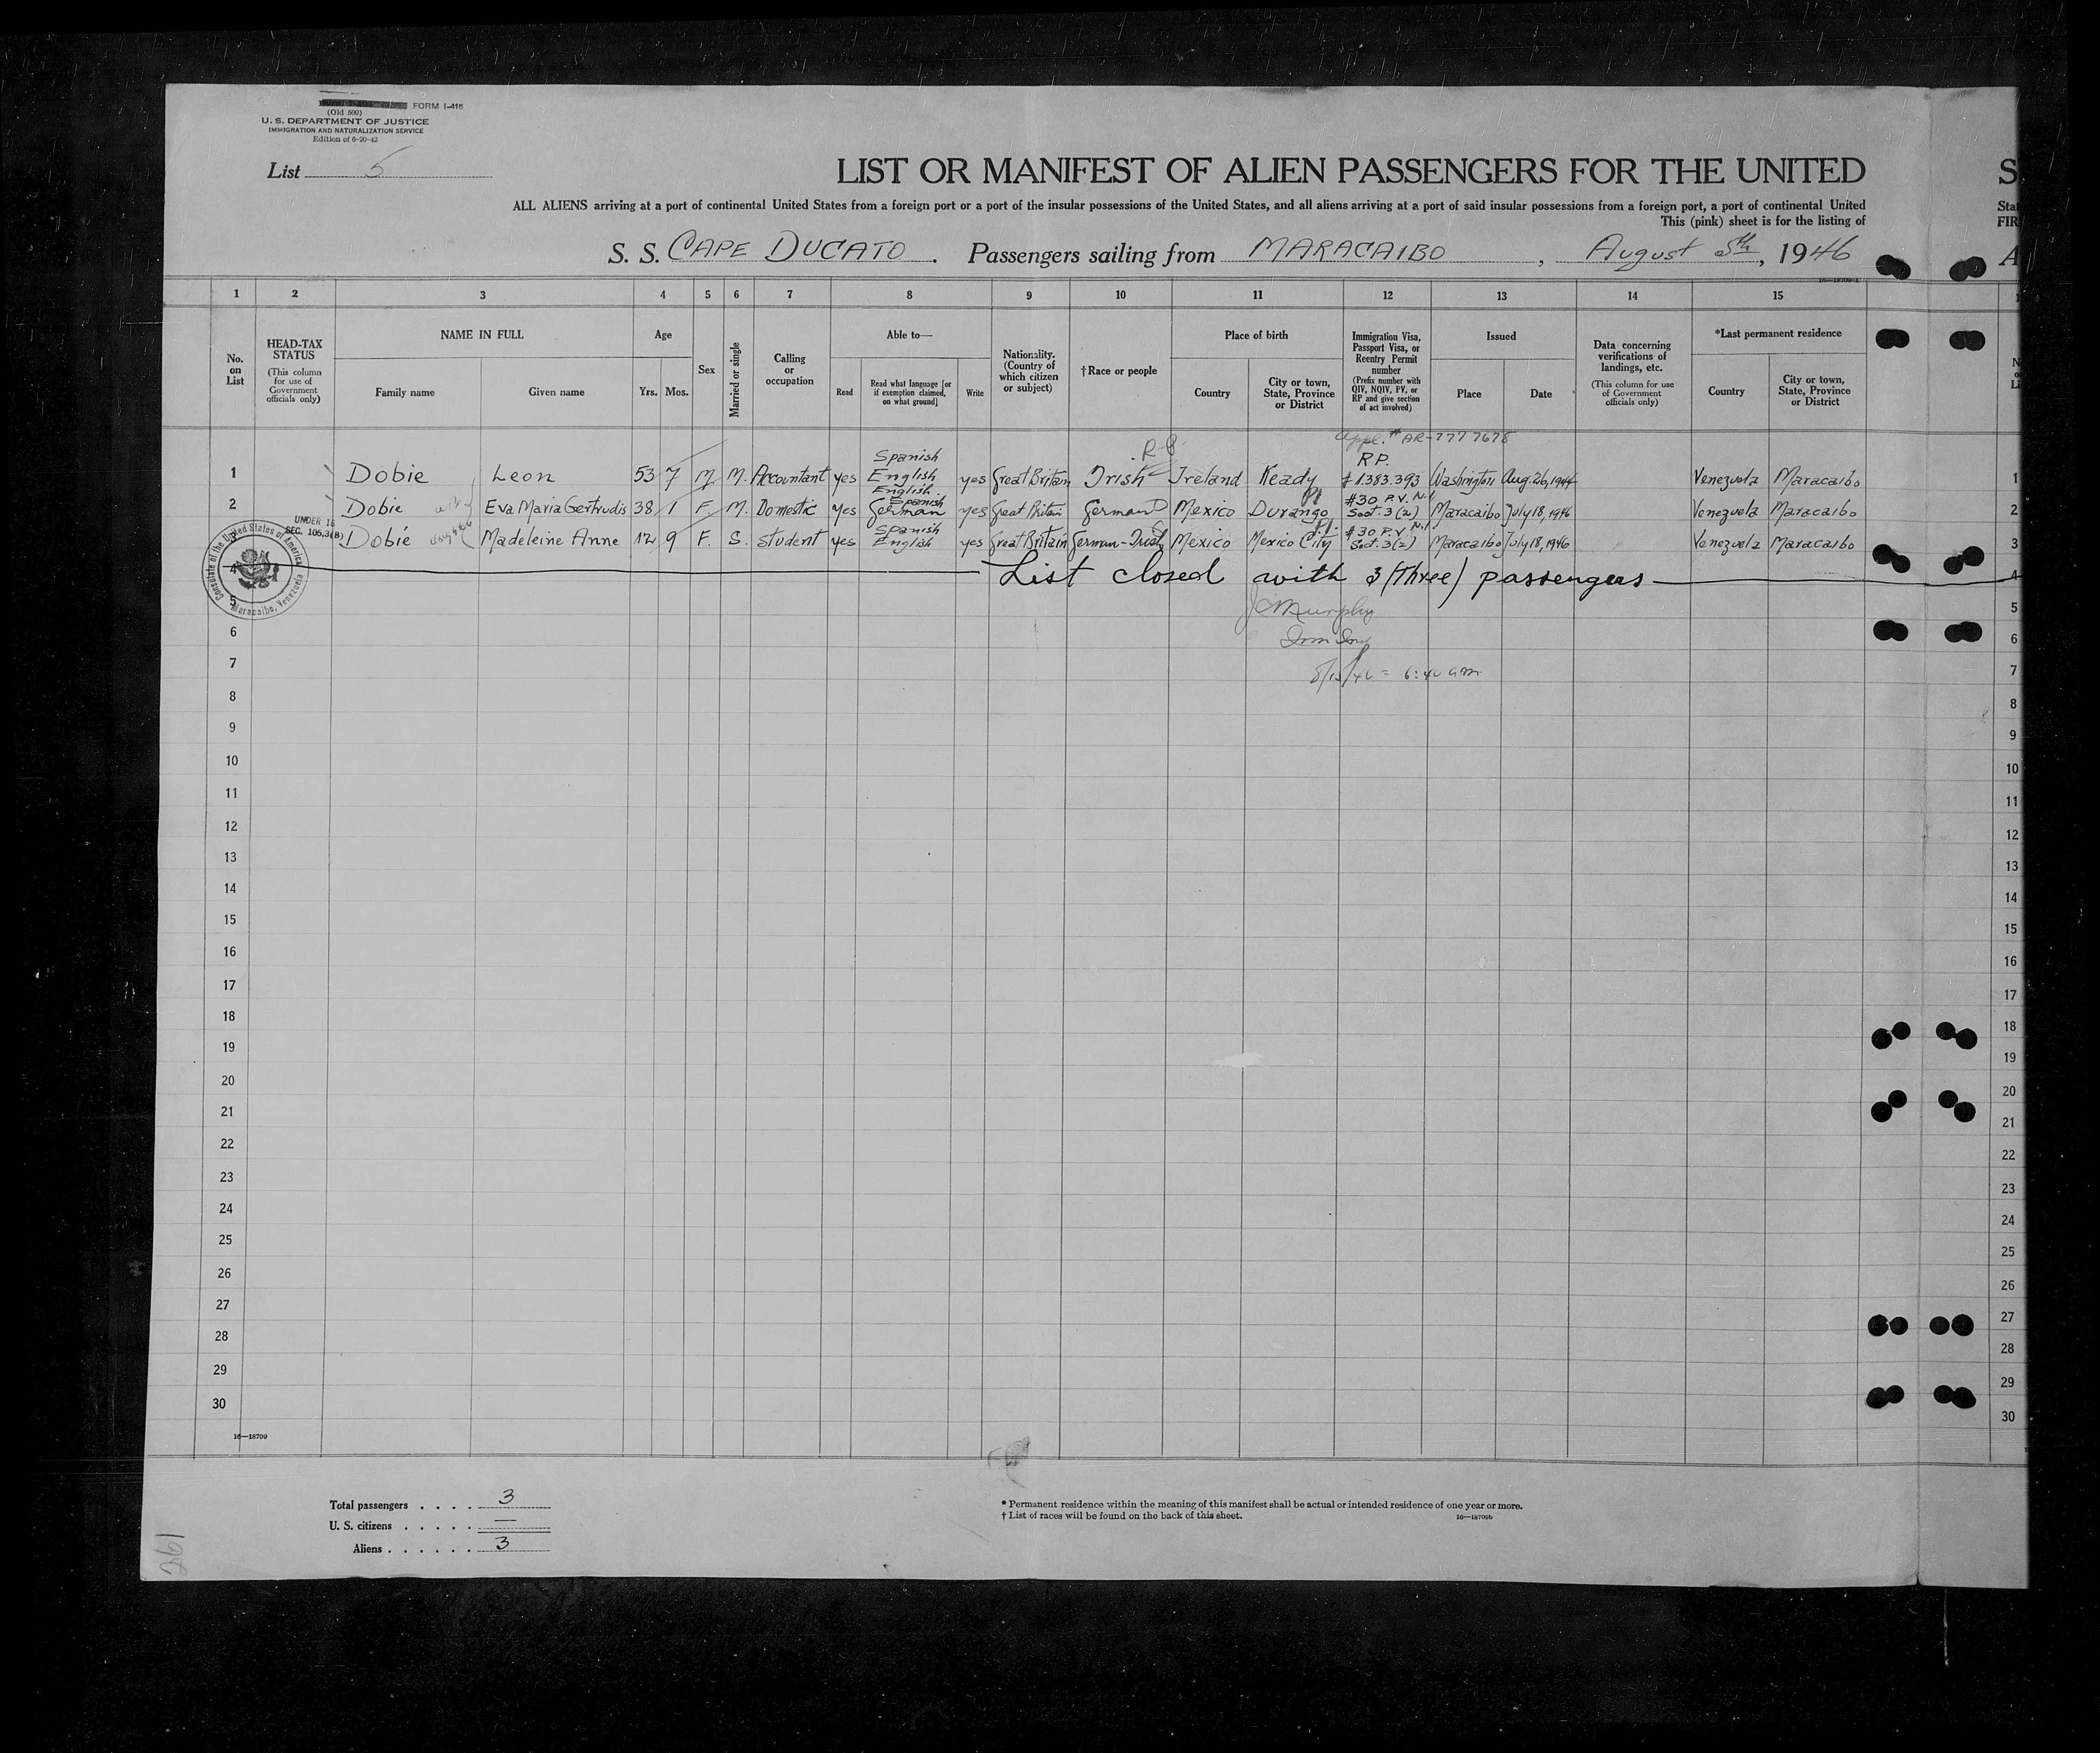 FORM I-415
(Old 500)
U. S. DEPARTMENT OF JUSTICE
IMMIGRATION AND NATURALIZATION SERVICE
Edition of 6-20-42
List 5
LIST OR MANIFEST OF ALIEN PASSENGERS FOR THE UNITED
S
ALL ALIENS arriving at a port of continental United States from a foreign port or a port of the insular possessions of the United States, and all aliens arriving at a port of said insular possessions from a foreign port, a port of continental United
Stat
This (pink) sheet is for the listing of
FIR
S. S. CAPE DUCATO . Passengers sailing from MARACAIBO , August 5th, 1946
A
1 2 3 4 5 6 7 8 9 10 11 12 13 14 15
No. on List
HEAD-TAX STATUS (This column for use of Government officials only)
NAME IN FULL
Family name
Given name
Age
Yrs. Mos.
Sex
Married or single
Calling or occupation
Able to—
Read
Read what language [or if exemption claimed, on what ground]
Write
Nationality. (Country of which citizen or subject)
†Race or people
Place of birth
Country
City or town, State, Province or District
Immigration Visa, Passport Visa, or Reentry Permit number (Prefix number with QIV, NQIV, PV, or RP and give section of act involved)
Issued
Place
Date
Data concerning verifications of landings, etc. (This column for use of Government officials only)
*Last permanent residence
Country
City or town, State, Province or District
appl. # AR-7777678
1 Dobie Leon 53 7 M M. Accountant yes Spanish English yes Great Britain Irish Ireland Keady R.P. # 1.383.393 Washington Aug. 26, 1944 Venezuela Maracaibo 1
2 Dobie wife Eva Maria Gertrudis 38 1 F. M. Domestic yes English Spanish German yes Great Britain German Mexico Durango #30 P.V. Sect. 3(2) Maracaibo July 18, 1946 Venezuela Maracaibo 2
UNDER 16
SEC. 105.3(B)
3 Dobié daughter Madeleine Anne 12 9 F. S. Student yes Spanish English yes Great Britain German-Irish Mexico Mexico City #30 P.V. Sect. 3(2) Maracaibo July 18, 1946 Venezuela Maracaibo 3
Consulate of the United States of America
Maracaibo, Venezuela
4 List closed with 3 (Three) passengers 4
5 JCMurphy 5
6 Imm Insp 6
7 8/13/46 = 6:40 am 7
8 8
9 9
10 10
11 11
12 12
13 13
14 14
15 15
16 16
17 17
18 18
19 19
20 20
21 21
22 22
23 23
24 24
25 25
26 26
27 27
28 28
29 29
30 30
16—18709
Total passengers . . . . 3
U. S. citizens . . . . . —
Aliens . . . . . . 3
* Permanent residence within the meaning of this manifest shall be actual or intended residence of one year or more.
† List of races will be found on the back of this sheet.
16—18709b
261